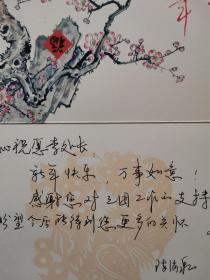 年
福
心祝愿李处长：
新年快乐 万事如意！
感谢您对三团工作的支持
盼望今后能得到您更多的关怀